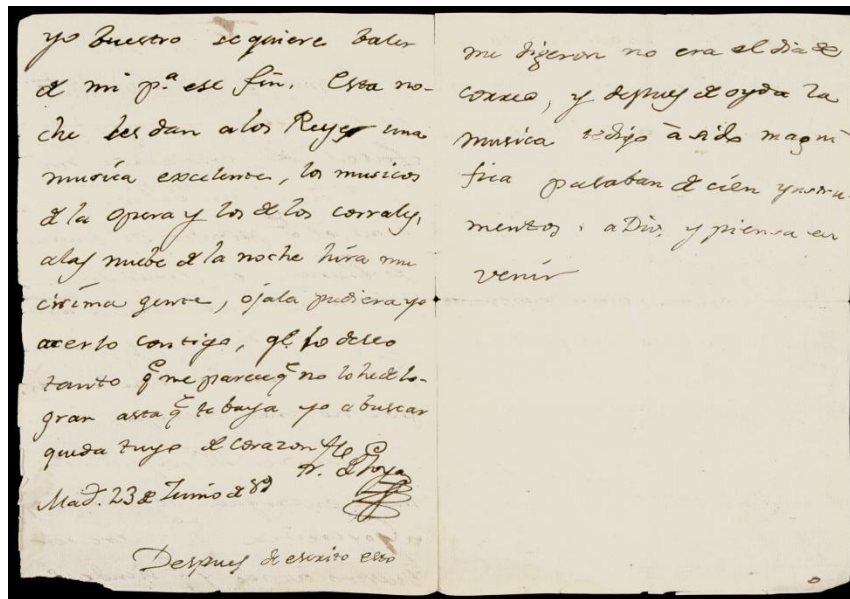 yo buestro se quiere baler
de mi pª. ese fin. Esta no-
che les dan a los Reyes una
musica excelente, los musicos
de la opera y los de los corrales,
a las nuebe de la noche hira mu
cisima gente, ojala pudiera yo
acerlo contigo, qe. lo deseo
tanto q me parece q no lo he de lo-
grar asta q te baya yo a buscar
queda tuyo de corazon
Fr. de Goya
Mad. 23 de Junio de 89
Despues de escrito esto
me digeron no era el dia de
correo, y despues de oyda la
musica te digo à sido magni
fica pasaban de cien ynstru-
mentos. a Dios, y piensa en
venir